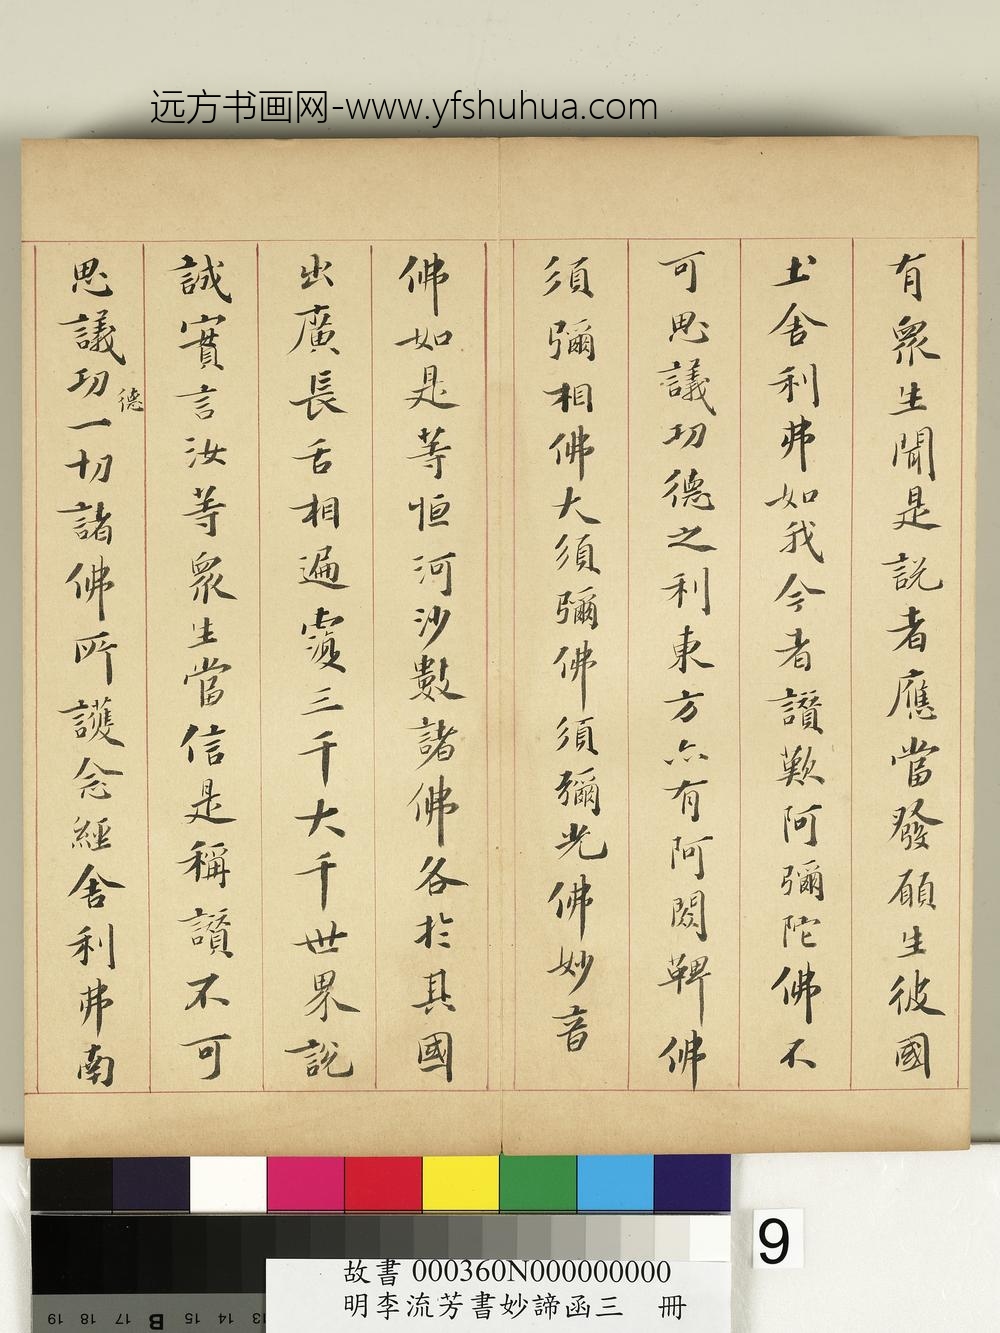 远方书画网-www.yfshuhua.com
有眾生聞是説者應當發願生彼國
土舍利弗如我今者讚歎阿彌陀佛不
可思議功德之利東方亦有阿閦鞞佛
須彌相佛大須彌佛須彌光佛妙音
佛如是等恒河沙數諸佛各於其國
出廣長舌相遍覆三千大千世界説
誠實言汝等眾生當信是稱讚不可
思議功德一切諸佛所護念經舍利弗南
9
故書 000360N000000000
明李流芳書妙諦函三 冊
19 18 17 16 B 15 14 13